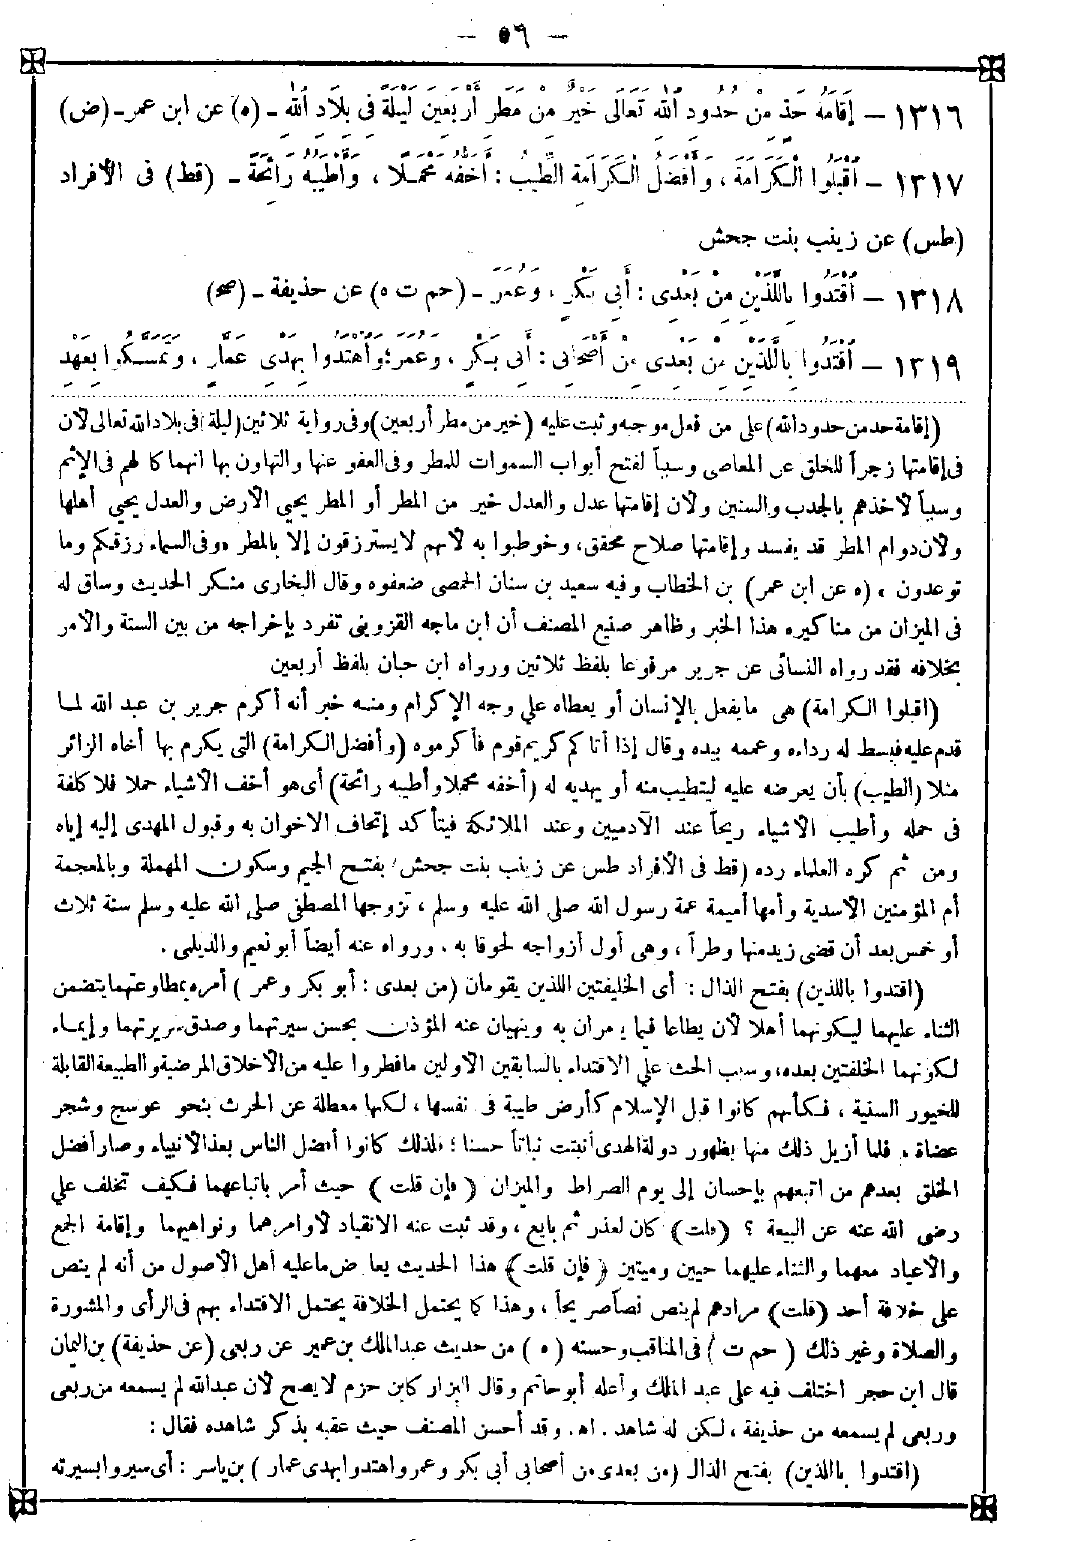 — ٥٦ —
١٣١٦ – إِقَامَةُ حَدٍّ مِنْ حُدُودِ اللّٰهِ تَعَالَى خَيْرٌ مِنْ مَطَرِ أَرْبَعِينَ لَيْلَةً فِي بِلَادِ اللّٰهِ - (ه) عن ابن عمر - (ض)
١٣١٧ – اقْبَلُوا الْكَرَامَةَ، وَأَفْضَلُ الْكَرَامَةِ الطِّيبُ: أَخَفُّهُ مَحْمَلًا، وَأَطْيَبُهُ رَائِحَةً - (قط) فى الأفراد
(طس) عن زينب بنت جحش
١٣١٨ – اقْتَدُوا بِاللَّذَيْنِ مِنْ بَعْدِى: أَبِي بَكْرٍ، وَعُمَرَ - (حم ت ه) عن حذيفة - (صح)
١٣١٩ – اقْتَدُوا بِاللَّذَيْنِ مِنْ بَعْدِى مِنْ أَصْحَابِى: أَبِى بَكْرٍ، وَعُمَرَ؛ وَاهْتَدُوا بِهَدْىِ عَمَّارٍ، وَتَمَسَّكُوا بِعَهْدِ
(إقامة حد من حدود الله) على من فعل موجبه وثبت عليه (خير من مطر أربعين) وفى رواية ثلاثين (ليلة) فى بلاد الله تعالى لأن
فى إقامتها زجراً للخلق عن المعاصى وسبباً لفتح أبواب السموات للمطر وفى العفو عنها والتهاون بها انهما كا لهم فى الإثم
وسبباً لأخذهم بالجدب والسنين ولأن إقامتها عدل والعدل خير من المطر أو المطر يحيى الأرض والعدل يحيى أهلها
ولأن دوام المطر قد يفسد وإقامتها صلاح محقق، وخوطبوا به لأنهم لا يسترزقون إلا بالمطر «وفى السماء رزقكم وما
توعدون» (ه عن ابن عمر) بن الخطاب وفيه سعيد بن سنان الحمصى ضعفوه وقال البخارى منكر الحديث وساق له
فى الميزان من مناكيره هذا الخبر وظاهر صنيع المصنف أن ابن ماجه القزوينى تفرد بإخراجه من بين الستة والأمر
بخلافه فقد رواه النسائى عن جرير مرفوعا بلفظ ثلاثين ورواه ابن حبان بلفظ أربعين
(اقبلوا الكرامة) هى ما يفعل بالإنسان أو يعطاه على وجه الإكرام ومنه خبر أنه أكرم جرير بن عبد الله لما
قدم عليه فبسط له رداءه وعممه بيده وقال إذا أتاكم كريم قوم فأكرموه (وأفضل الكرامة) التى يكرم بها أخاه الزائر
مثلا (الطيب) بأن يعرضه عليه ليتطيب منه أو يهديه له (أخفه محملا وأطيبه رائحة) أى هو أخف الأشياء حملا فلا كلفة
فى حمله وأطيب الأشياء ريحاً عند الآدميين وعند الملائكة فيتأكد إتحاف الاخوان به وقبول المهدى إليه إياه
ومن ثم كره العلماء رده (قط فى الأفراد طس عن زينب بنت جحش) بفتح الجيم وسكون المهملة وبالمعجمة
أم المؤمنين الأسدية وأمها أميمة عمة رسول الله صلى الله عليه وسلم، تزوجها المصطفى صلى الله عليه وسلم سنة ثلاث
أو خمس بعد أن قضى زيد منها وطراً، وهى أول أزواجه لحوقا به. ورواه عنه أيضاً أبو نعيم والديلمى.
(اقتدوا باللذين) بفتح الذال: أى الخليفتين اللذين يقومان (من بعدى: أبو بكر وعمر) أمره بمطاوعتهما يتضمن
الثناء عليهما ليكونهما أهلا لأن يطاعا فيما يأمران به وينهيان عنه المؤذن بحسن سيرتهما وصدق سريرتهما وإيماء
لكونهما الخلفتين بعده، وسبب الحث على الاقتداء بالسابقين الأولين ما فطروا عليه من الأخلاق المرضية والطبيعة القابلة
للخيور السنية، فكأنهم كانوا قبل الإسلام كأرض طيبة فى نفسها، لكنها معطلة عن الحرث بنحو عوسج وشجر
عضاة، فلما أزيل ذلك منها بظهور دولة الهدى أنبتت نباتاً حسنا؛ فلذلك كانوا أفضل الناس بعد الأنبياء وصار أفضل
الخلق بعدهم من اتبعهم بإحسان إلى يوم الصراط والميزان (فإن قلت) حيث أمر باتباعهما فكيف تخلف على
رضى الله عنه عن البيعة؟ (قلت) كان لعذر ثم بايع، وقد ثبت عنه الانقياد لأوامرهما ونواهيهما وإقامة الجمع
والأعياد معهما والثناء عليهما حيين وميتين (فإن قلت) هذا الحديث يعارض ما عليه أهل الأصول من أنه لم ينص
على خلافة أحد (قلت) مرادهم لم ينص نصاً صريحاً، وهذا كما يحتمل الخلافة يحتمل الاقتداء بهم فى الرأى والمشورة
والصلاة وغير ذلك (حم ت) فى المناقب وحسنه (ه) من حديث عبد الملك بن عمير عن ربعى (عن حذيفة) بن اليمان
قال ابن حجر اختلف فيه على عبد الملك وأعله أبو حاتم وقال البزار كابن حزم لا يصح لأن عبد الله لم يسمعه من ربعى
وربعى لم يسمعه من حذيفة، لكن له شاهد. اه. وقد أحسن المصنف حيث عقبه بذكر شاهده فقال:
(اقتدوا باللذين) بفتح الذال (من بعدى من أصحابى أبى بكر وعمر واهتدوا بهدى عمار) بن ياسر: أى سيروا بسيرته